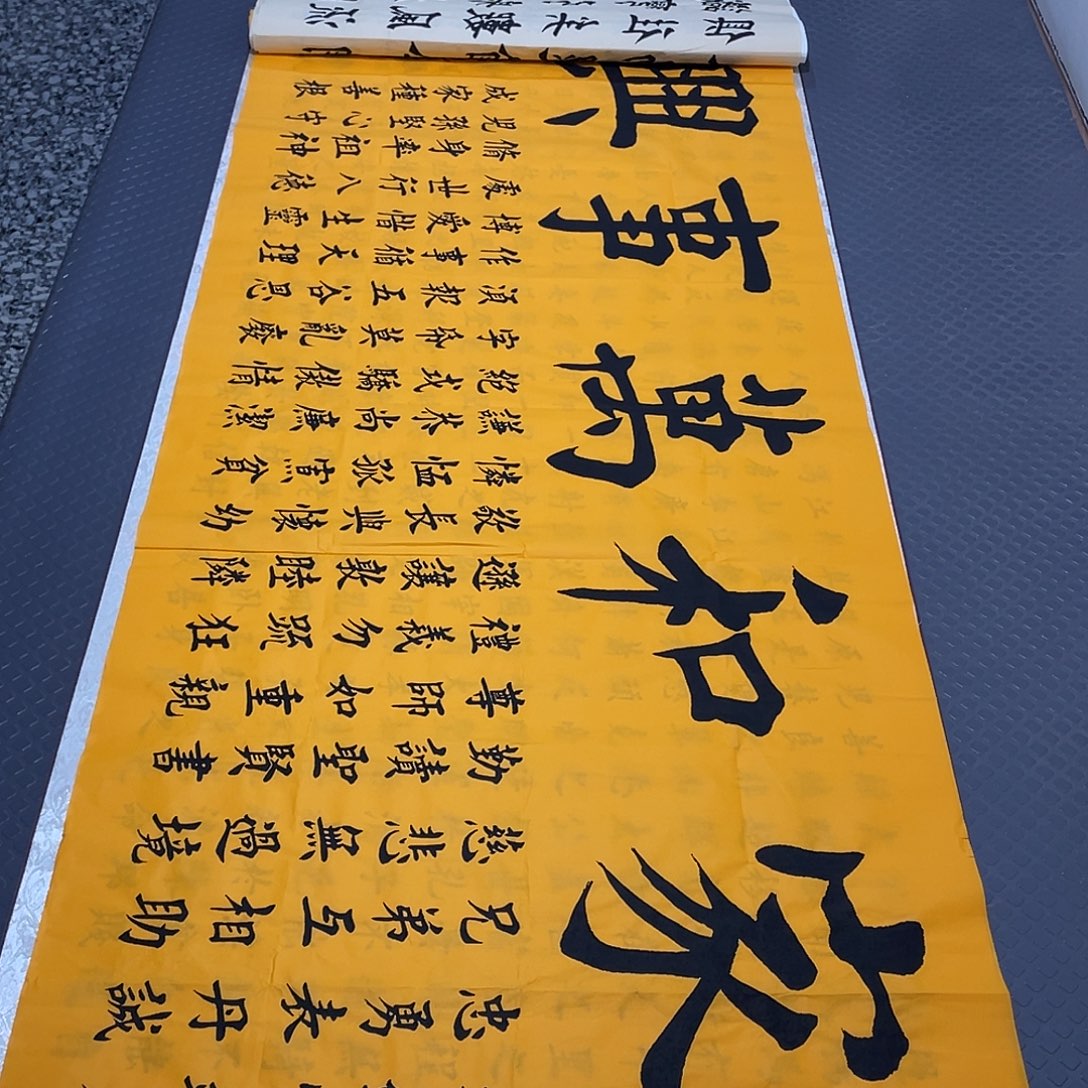 家和萬事興
忠勇表丹誠
兄弟互相助
慈悲無過境
勤讀聖賢書
尊師如重親
禮義勿疏狂
遜讓敦睦鄰
敬長與懷幼
憐恤孤寡貧
謙恭尚廉潔
絕戒驕傲情
字紙莫亂廢
須報五谷恩
作事循天理
博愛惜生靈
處世行八德
脩身率祖神
兒孫堅心守
成家種善根